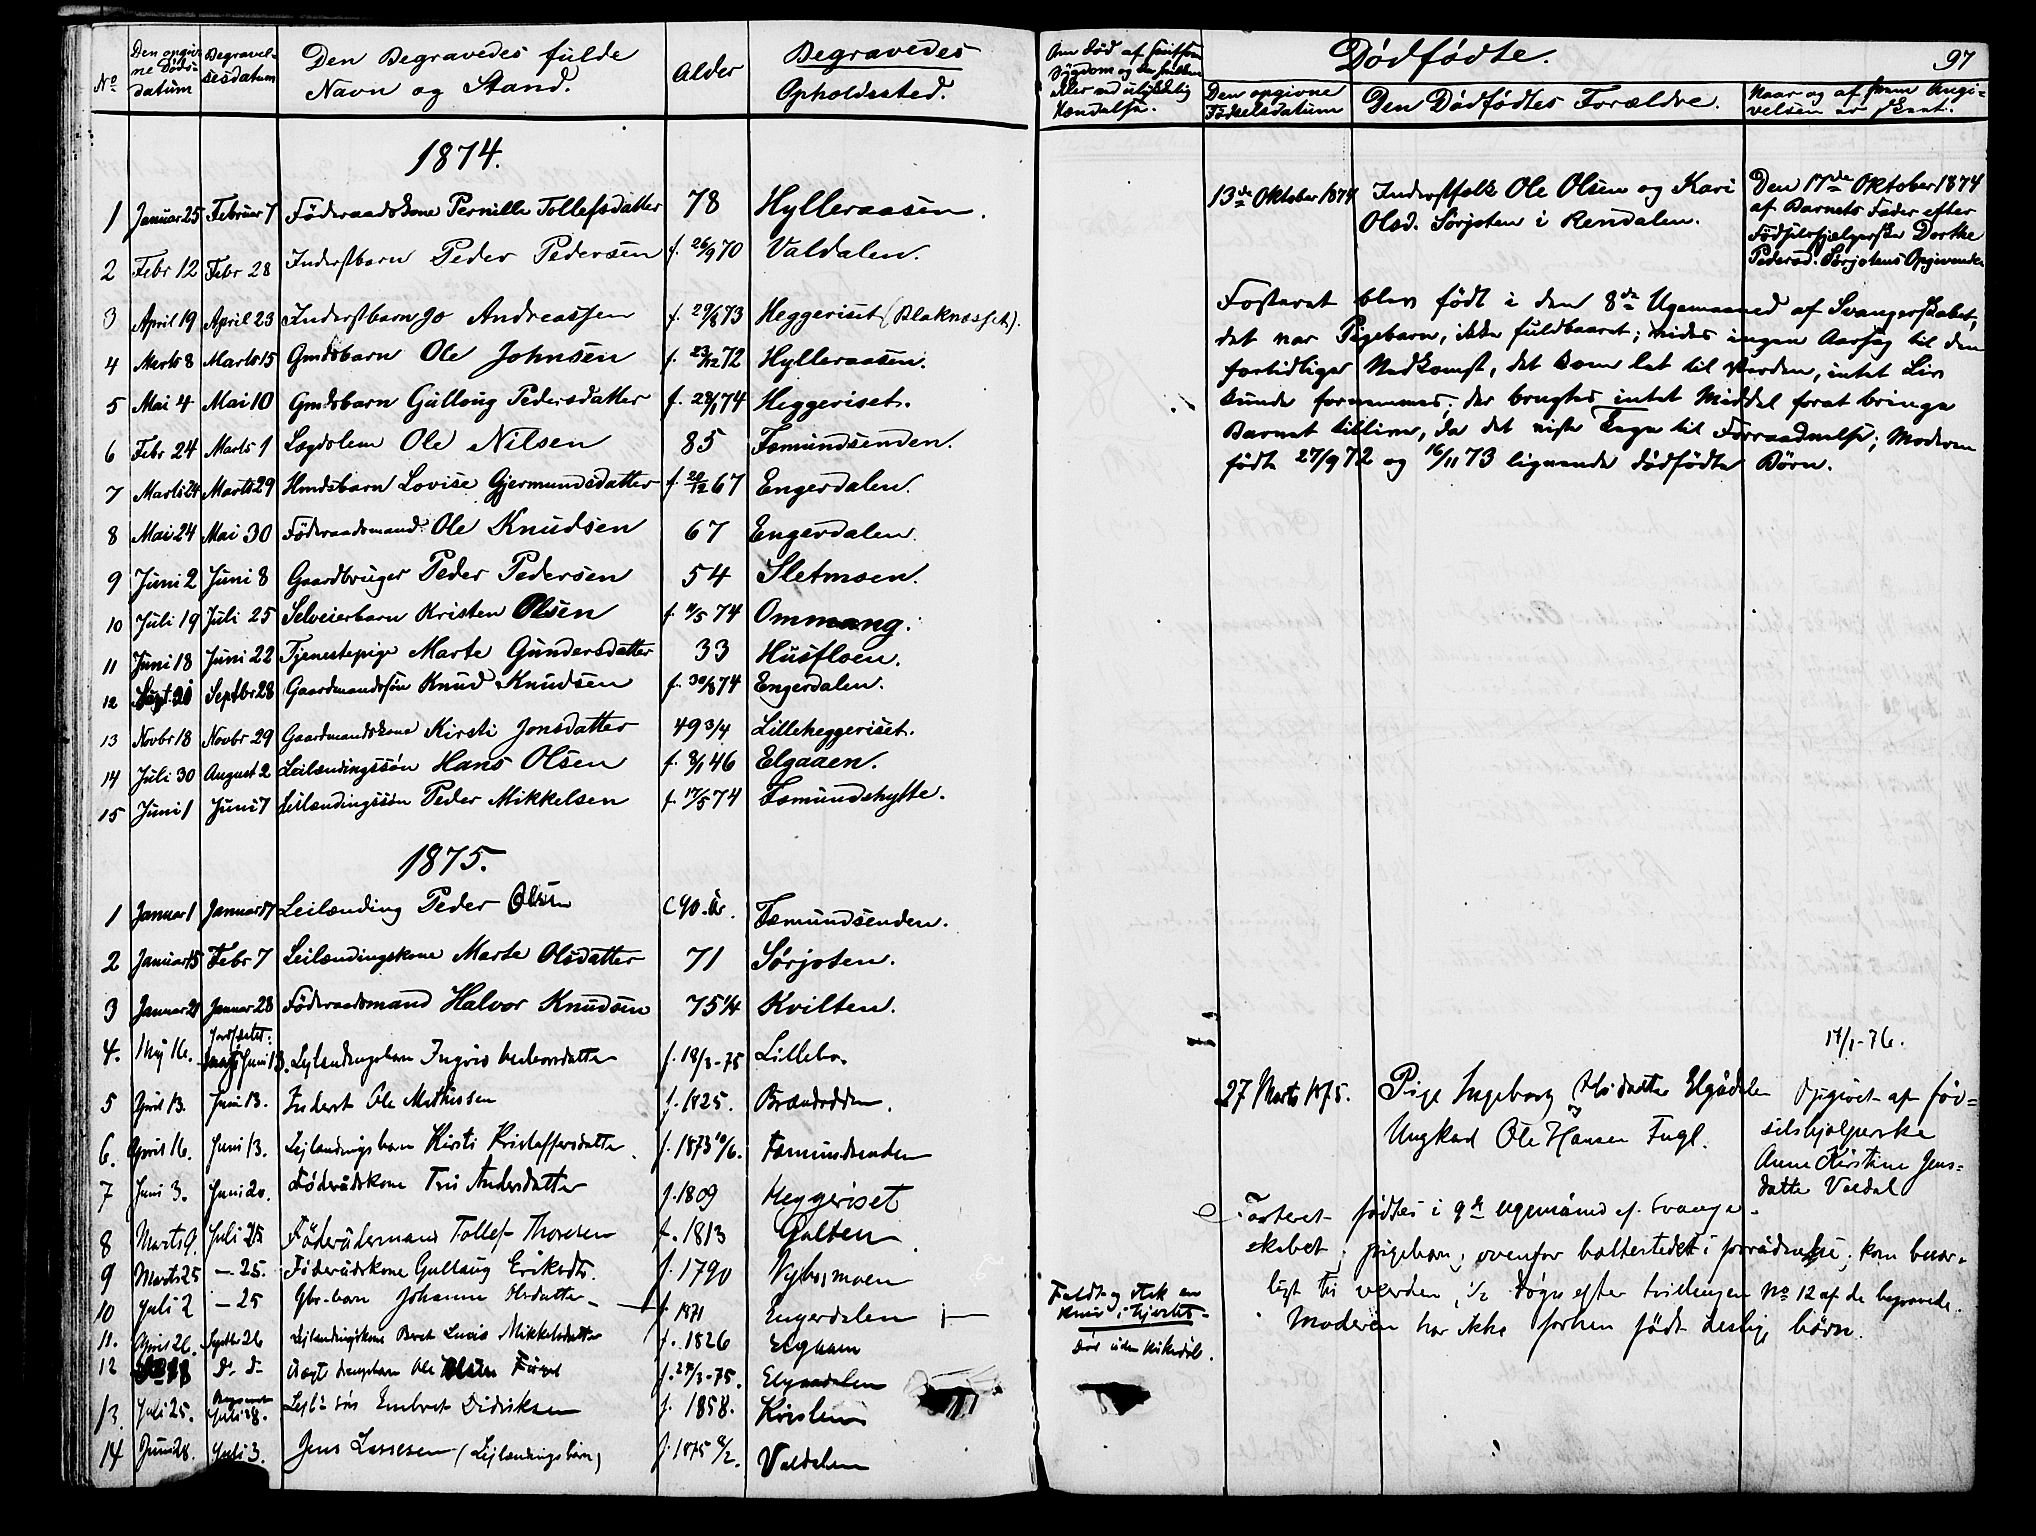 No
Den opgiv-
ne Døds-
datum
Begravel-
sesdatum
Den Begravedes fulde
Navn og Stand.
Alder
Begravedes
Opholdssted.
1874.
1 Januar 25 Februar 7 Föderaadskone Pernille Tollefsdatter 78 Hylleraasen.
2 Febr 12 Febr 28 Inderstbarn Peder Pedersen f. 26/9 70 Valdalen.
3 April 19 April 23 Inderstbarn Jo Andreassen f. 29/8 73 Heggeriset (Blaknesset).
4 Marts 8 Marts 15 Gmdsbarn Ole Johnsen f. 23/12 72 Hylleraasen.
5 Mai 4 Mai 10 Gmdsbarn Gulloug Pedersdatter f. 28/1 74 Heggeriset.
6 Febr 24 Marts 1 Lægdslem Ole Nilsen 85 Fæmundsenden.
7 Marts 24 Marts 29 Hmdsbarn Lovise Gjermundsdatter f. 20/12 67 Engerdalen.
8 Mai 24 Mai 30 Föderaadsmand Ole Knudsen 67 Engerdalen.
9 Juni 2 Juni 8 Gaardbruger Peder Pedersen 54 Sletmoen.
10 Juli 19 Juli 25 Selveierbarn Kristen Olsen f. 11/5 74 Ommang.
11 Juni 18 Juni 22 Tjenestepige Marte Gundersdatter 33 Husfloen.
12 Septbr 28 Gaardmandssøn Knud Knudsen f. 30/8 74 Engerdalen.
13 Novbr 18 Novbr 29 Gaardmandskone Kirsti Jonsdatter 49 3/4 Lilleheggeriset.
14 Juli 30 August 2 Leilændingssøn Hans Olsen f. 8/1 46 Elgaaen.
15 Juni 1 Juni 7 Leilændingssøn Peder Mikkelsen f. 17/5 74 Fæmundshytte.
1875.
1 Januar 1 Januar 17 Leilænding Peder Olsen c 90 år. Fæmundsenden.
2 Januar 15 Febr 7 Leilændingskone Marte Olsdatter 71 Sørjoten.
3 Januar 21 Januar 28 Föderaadsmand Halvor Knudsen 75 1/4 Kvilten.
4. Maj 16. Juni 13. Lejlændingsbarn f. 18/3-75 Lillebo
5 April 13. Juni 13. Inderst Ole Mathissen f. 1825.
6. April 16. Juni 13. Lejlændingsbarn Kirsti Kristoffersdatter f. 1873 10/6. Fæmundsenden
7 Juni 3. Juni 20. Føderådskone Andersdatter f. 1809 Heggeriset
8 Marts 9. Juli 25 Føderådsmand Tollef Thoresen f. 1813 Galten
9 Marts 25 — 25. Føderådskone Gullaug Eriksdtr. f. 1790
10 Juli 2 — 25 Gbr-barn Johanne Olsdatter f. 1871 Engerdalen
11. April 26. Septbr 26 Lejlændingskone Beret Lucie Mikkelsdatter f. 1826 Elgaaen
12 D. d. Uægte drengebarn Ole f. 27/3-75. Elgaadalen
13. Juli 25. Lejl. søn Embret Didriksen f. 1858.
14 Juni 28. Juli 3. Jens Larsesen (Lejlændingsbarn) f. 1875 Valdalen
Om Død af smitsom
Sygdom og
eller ved ulykkelig
Hændelse.
Faldt og stik en
kniv i hjertet
Dødfødte.
97
Den opgivne
Fødselsdatum
Den Dødfødtes Forældre.
Naar og af hvem Angi-
velsen er skeet.
13de Oktober 1874 Inderstfolk Ole Olsen og Kari
Olsd. Sørjoten i Rendalen.
Den 17de Oktober 1874
af Barnets Fader efter
Fødselshjelperske Dorthe
Pedersd. Sørjotens Opgivende.
Fosteret blev født i den 8de Ugemaaned af Svangerskabet,
det var Pigebarn, ikke fuldbaaret; vides ingen Aarsag til den
fortidlige Nedkomst, det kom let til Verden, intet Liv
kunde fornemmes; der brugtes intet Middel forat bringe
Barnet tillive, da det viste Tegn til Forraadnelse; Moderen
fødte 27/9 72 og 16/11 73 lignende dödfødte Børn.
17/1-76.
27 Marts 1875. Pige Ingeborg Olsdatter Elgådalen
og
Ungkarl Ole Hansen Fugl.
Opgivet af fød-
selshjælperske
Anne Kirstine Jens-
datter Valdal
Fosteret fødtes i 9de ugemåned af svanger-
skabet; pigebarn; ovenfor i forrådnelse; kom
ligt til verden, 1/2 døgn efter tvillingen No 12 af de begravede.
Moderen har ikke forhen født deslige børn.